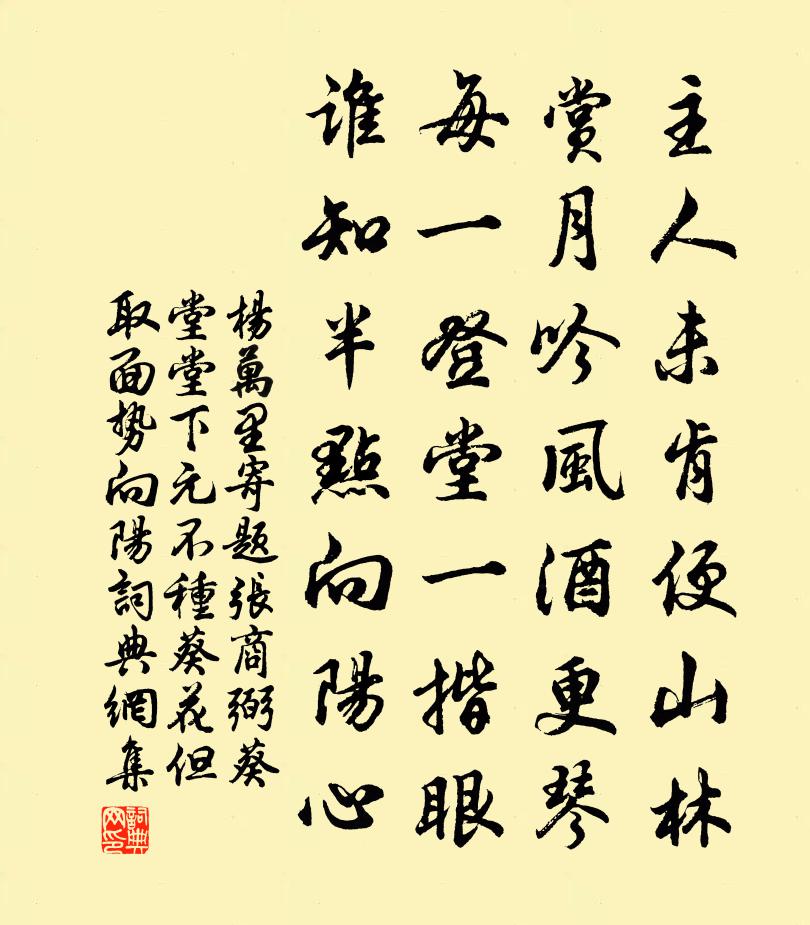 主人未肯便山林
賞月吟風酒更琴
每一登堂一揩眼
誰知半點向陽心
楊萬里寄題張商弼葵
堂堂下元不種葵花但
取面势向陽詞典網集
詞典網印